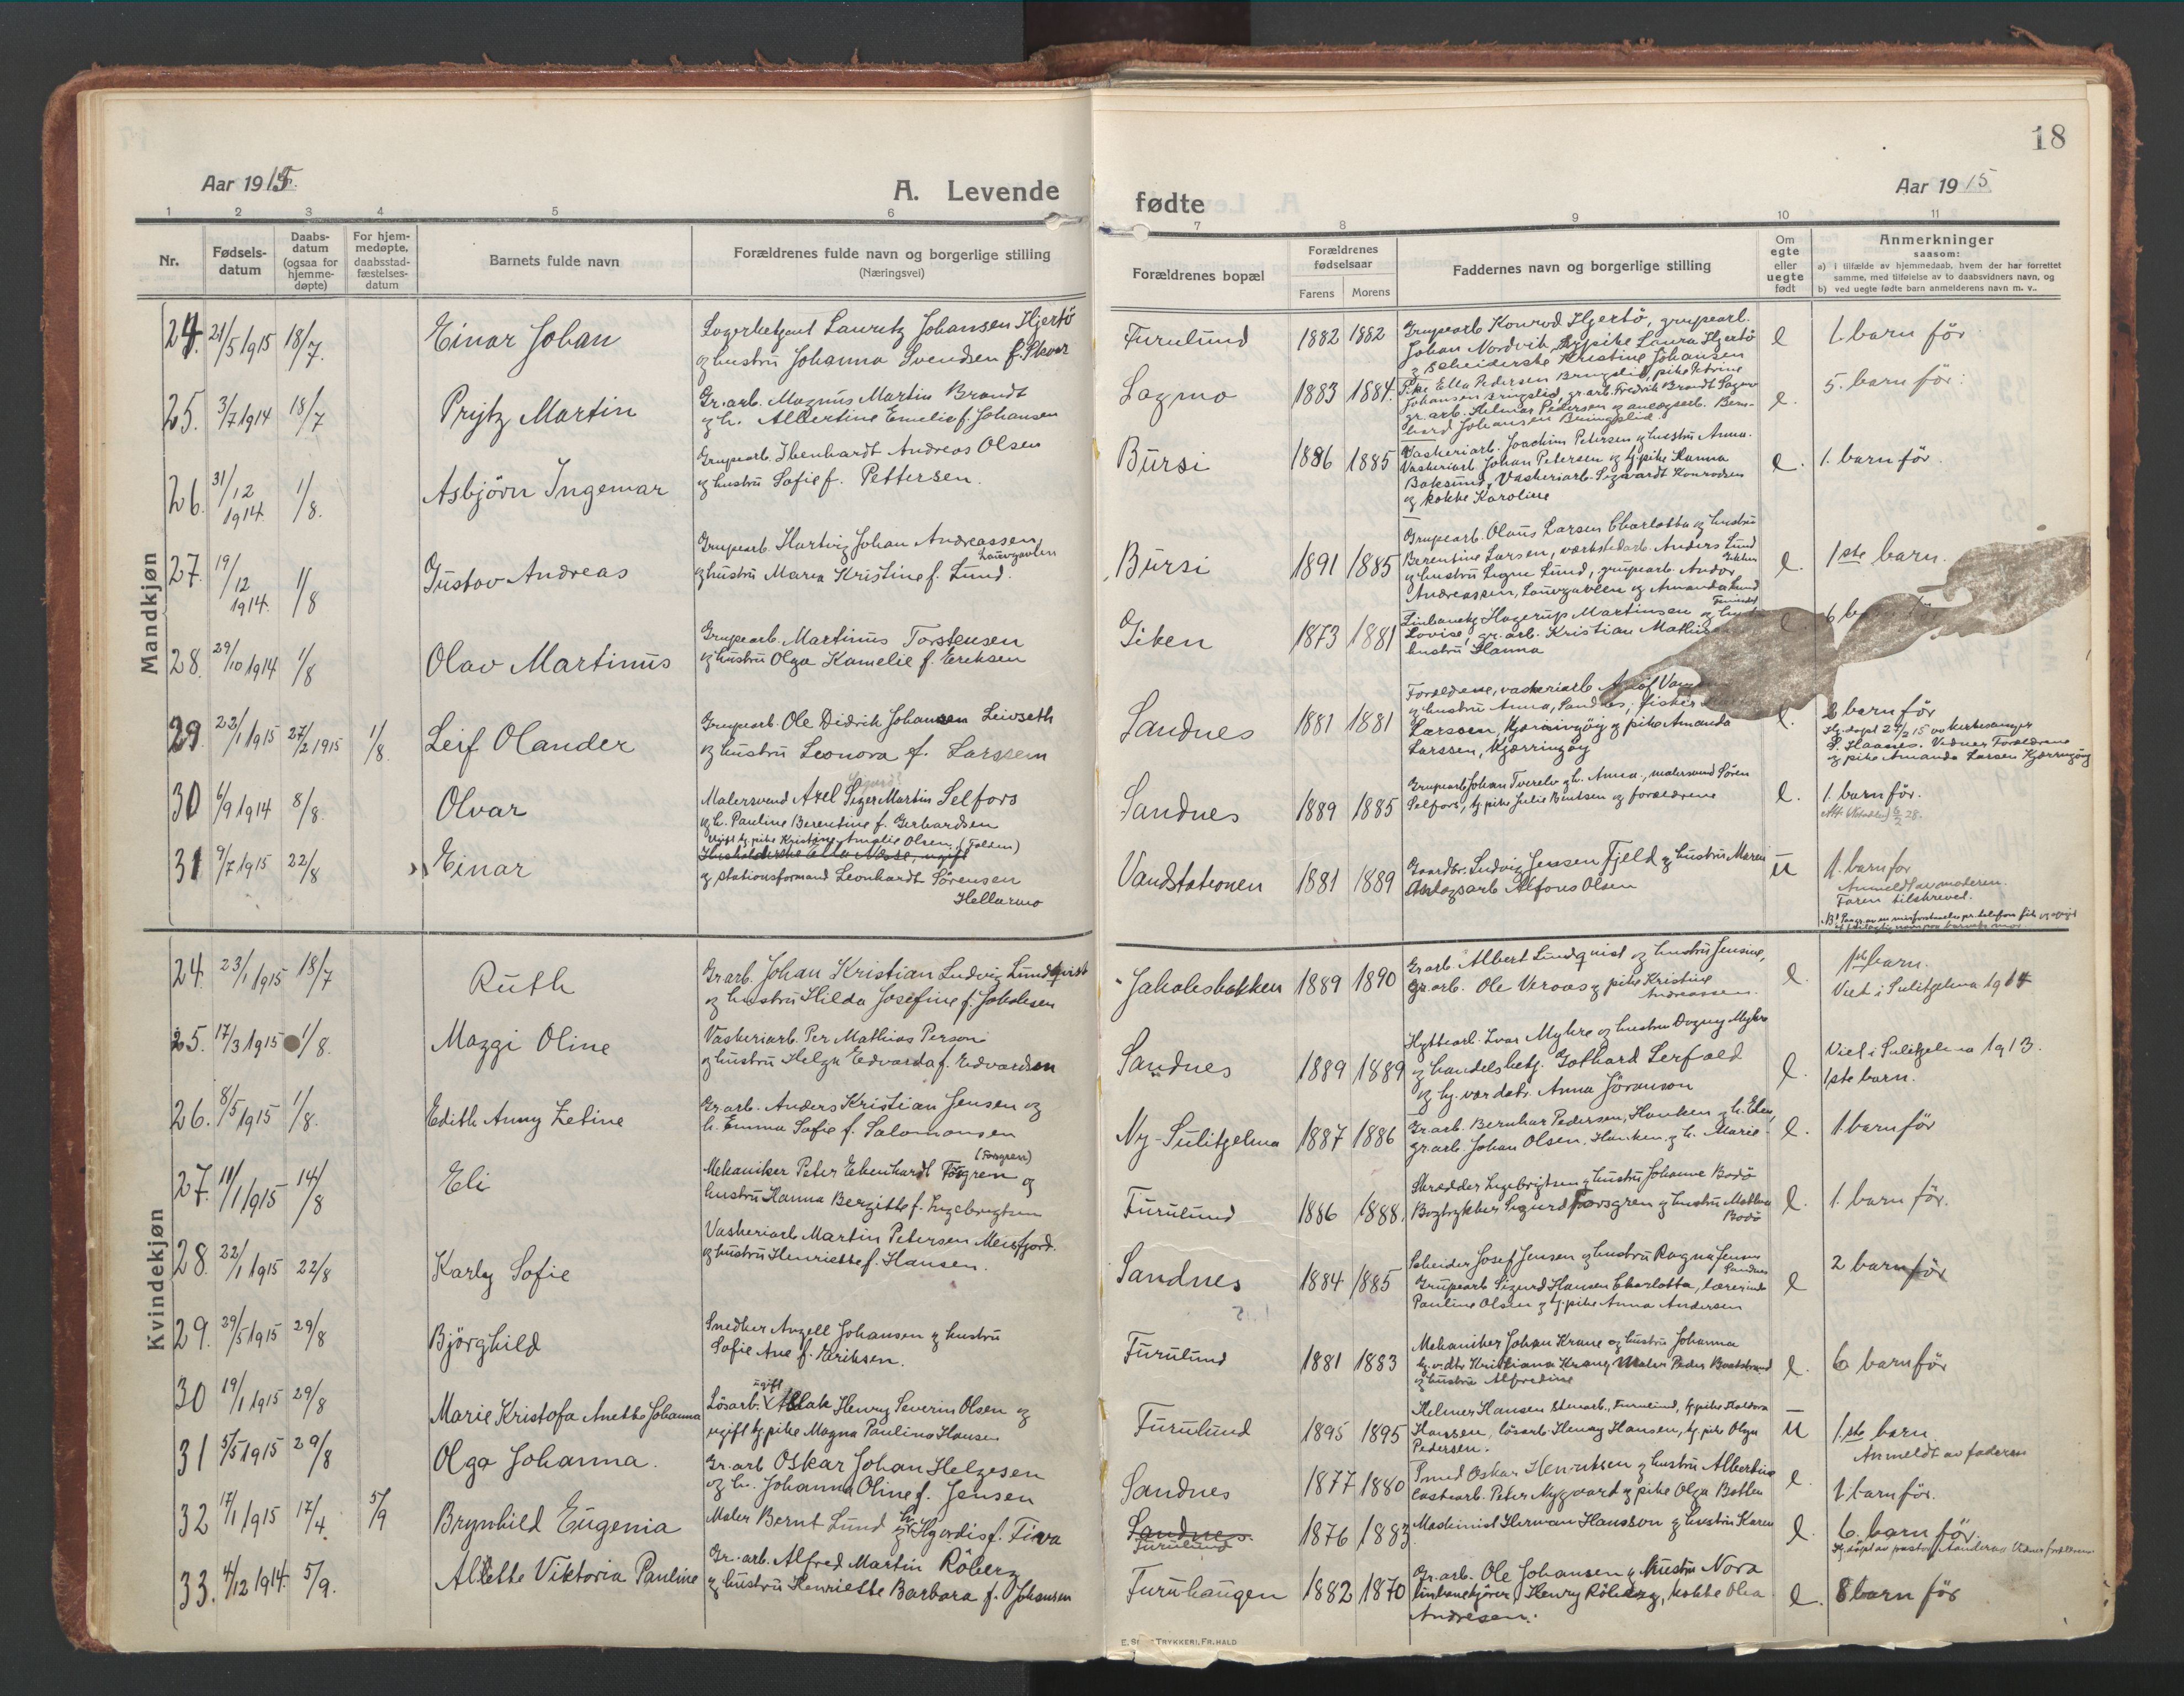 18
Aar 1915.
A. Levende
fødte
Aar 1915
1 2 3 4 5 6
7 8 9 10 11
Nr.
Fødsels-
datum
Daabs-
datum
(ogsaa for
hjemme-
døpte)
For hjem-
medøpte,
daabsstad-
fæstelses-
datum
Barnets fulde navn
Forældrenes fulde navn og borgerlige stilling
(Næringsvei)
Forældrenes bopæl
Forældrenes
fødselsaar
Farens Morens
Faddernes navn og borgerlige stilling
Om
egte
eller
uegte
født
Anmerkninger
saasom:
a) i tilfælde av hjemmedaab, hvem der har forrettet
samme, med tilføielse av to daabsvidners navn, og
b) ved uegte fødte barn anmelderens navn m. v..
Mandkjøn
24. 21/5 1915 18/7. Einar Johan
Lagerbetjent Lauritz Johansen Hjertö
og hustru Johanna Svendsen f. Skver
Furulund 1882 1882
Grupearb Konrad Hjertö, grupearb.
Johan Nordvik, tj. pike Laura Hjertö
og Scheiderske Kristine Johansen
e 1. barn för
25. 3/7 1914 18/7 Prytz Martin
Gr. arb. Magnus Martin Brandt
og h. Albertine Emelie f. Johansen
Lagmo 1883 1884.
Pike Ella Pedersen Brungslid, pike Petrine
Johansen Brungslid, gr. arb. Fredrik Brandt Lagmo
gr. arb. Helmar Pedersen og anlægsarb. Bern-
hard Johansen Brungslid
e. 5. barn för.
26. 31/12 1914. 1/8. Asbjörn Ingemar
Grupearb. Ihenhardt Andreas Olsen
og hustru Sofie f. Pettersen.
Bursi 1886 1885
Vaskeriarb. Joachim Petersen og hustru Anna.
Vaskeriarb Johan Petersen og tj. pike Hanna
Baksund, Vaskeriarb. Sigvardt Konradsen
og kokke Karoline
e. 1. barn för.
27. 19/12 1914. 1/8 Gustav Andreas
Grupearb. Hartvig Johan Andreassen
Laurgavlen
og hustru Maria Kristine f. Lund.
Bursi 1891 1885
Grupearb. Olaus Larsen Charlotta og hustru
Berentine Larsen, værkstedarb. Anders Lund
og hustru Signe Lund, grupearb. Andor
Andreassen, Laurgavlen og Amanda Lund
e. 1ste barn.
28. 29/10 1914 1/8 Olav Martinus
Grupearb. Martinus Torstensen
og hustru Olga Kamelie f. Eriksen
Giken 1873 1881
Linbanekj. Hagerup Martinsen og hustru
Lovise, gr. arb. Kristian
hustru Hanna
29. 22/1 1915 27/2 1915 1/8. Leif Olander
Grupearb. Ole Didrik Johansen Leivseth
og hustru Leonora f. Larssen
Sandnes 1881 1881
Forældrene, vaskeriarb.
og hustru Anna, Sandnes, fisker
Larssen, Kjærringöy og pike Amanda
Larssen, Kjærringöy
e. 2 barn för
Hj. döpt 27/2 15 av kirkesanger
S. Haanes. Vidner Forældrene
og pike Amanda Larsen Kjærringöy
30 6/9 1914 8/8. Olvar
Malersvend Axel Siger Martin Selfors
og h. Pauline Berentine f. Gerhardsen
Sandnes 1889 1885
Grupearb Johan Tverelv og h. Anna, malersvend Sören
Selfors, tj. pike Julie Bentsen og forældrene
e. 1. barn för.
31 9/7 1915 22/8 Einar
Ugift tj. pike Kristine Amalie Olsen, (Folden)
Husholderske Ella Næse, ugift
og stationsformand Leonhardt Sörensen
Hellarmo
Vandstationen 1881 1889
Gaardbr. Ludvig Jensen Fjeld og hustru Maren
Anlægsarb Alfons Olsen
u 1. barn for
Anmeldt av moderen.
Faren tilskreved.
Kvindekjøn
24. 23/1 1915 18/7 Ruth
Gr arb. Johan Kristian Ludvig Lundqvist
og hustru Hilda Josefine f. Jakobsen
Jakobsbakken 1889 1890
Gr arb. Albert Lundquist og hustru Jensine,
gr. arb. Ole Veraas og pike Kristine
Andreassen.
e. 1ste barn.
Viet i Sulitjelma 1914
25. 17/3 1915 1/8. Maggi Oline
Vaskeriarb. Per Mathias Person
og hustru Helga Edvarda f. Edvardsen
Sandnes 1889 1889
Hyttearb. Ivar Myhre og hustru Dagny Myhre
og handelsbetj. Gothard Serfald
og hj. vær. datr. Anna Jöranson
e. Viet i Sulitjelma 1913.
1ste barn.
26. 8/5 1915 1/8. Edith Anny Zetine
Gr arb. Anders Kristian Jensen og
h. Emma Sofie f. Salomonsen
Ny-Sulitjelma 1887 1886
Gr arb. Bernhar Pedersen, Hanken og h. Elen,
gr arb. Johan Olsen, Hanken og h. Marie.
e. 1. barn för
27. 11/1 1915 14/8 Eli
(Forsgren)
Mekaniker Peter Ekenhardt Fosgren og
hustru Hanna Bergitte f. Ingebrigtsen
Furulund 1886 1888.
Skrædder Ingebrigtsen og hustru Johanne Bodö
Bogtrykker Sigurd Forsgren og hustru Mathea
Bodö
e. 1. barn för.
28. 22/1 1915 22/8 Karly Sofie
Vaskeriarb Martin Petersen Mersfjord.
og hustru Henriette f. Hansen.
Sandnes 1884 1885
Scheider Josef Jensen og hustru Ragna Jensen
Sandnes
Grupearb Sigurd Hansen Charlotta, lærerinde
Pauline Olsen og tj. pike Anna Andersen
e 2 barn för
29. 29/5 1915 29/8 Björghild
Snedker Angell Johansen og hustru
Sofie Ane f. Eriksen.
Furulund 1881 1883
Mekaniker Johan Krane og hustru Johanna
hj. v. dtr. Kristiana Krane, Maler Peder Baatstrand
og hustru Alfredine
e. 6 barn för
30 19/1 1915 29/8 Marie Kristofa Anette Johanna
ugift
Lösarb. Aslak Henry Severin Olsen og
ugift tj. pike Magna Pauline Hansen
Furulund 1895 1895
Helmer Hansen stenarb., Furulund, tj. pike Haldora
Hanssen, lösarb Henry Hansen, tj. pike Olga
Pedersen.
u 1.ste barn
Anmeldt av faderen
31 5/5 1915 29/8 Olga Johanna.
Gr. arb Oskar Johan Helgesen
og h. Johanna Oline f. Jensen
Sandnes 1877 1880
Smed Oskar Henriksen og hustru Albertine
Castearb. Peter Nygaard og pike Olga Botten
e. 1. barn för.
32 17/1 1915 17/4. 5/9 Brynhild Eugenia
Maler Bernt Lund og h. Hjørdis f. Finva
Sandnes.
Furulund
1876 1883.
Maskinist Herman Hansson og hustru Karen
e. 6. barn för.
33. 4/12 1914. 5/9. Alette Viktoria Pauline
Gr. arb. Alfred Martin Röberg
og hustru Henriette Barbara f. Johansen
Furuhaugen 1882 1870
Gr. arb. Ole Johansen og hustru Nora
linbanekjører Henry Röberg, kokke Olea
Andresen.
e. 8 barn för
TRYKKERI, FR.HALD